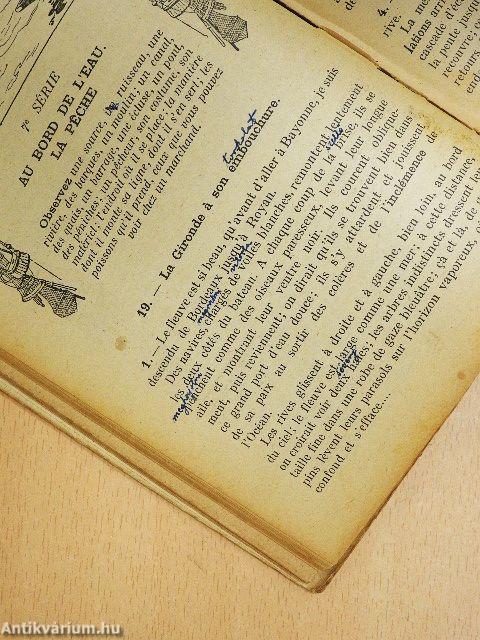 7e SÉRIE
AU BORD DE L'EAU.
LA PÊCHE
Observez une source, un ruisseau, une
rivière, des barques, un moulin; un canal,
des quais, un barrage, une écluse, un pont,
des péniches; un pêcheur, son costume, son
matériel; l'endroit où il se place; la manière
dont il monte sa ligne, dont il s'en sert; les
poissons qu'il prend, ceux que vous pouvez
voir chez un marchand.
19. — La Gironde à son embouchure.
1. — Le fleuve est si beau, qu'avant d'aller à Bayonne, je suis
descendu de Bordeaux jusqu'à Royan.
Des navires, chargés de voiles blanches, remontent lentement
les deux côtés du bateau. A chaque coup de la brise, ils se
penchent comme des oiseaux paresseux, levant leur longue
aile, et montrant leur ventre noir. Ils courent oblique-
ment, puis reviennent; on dirait qu'ils se trouvent bien dans
ce grand port d'eau douce; ils s'y attardent et jouissent
de sa paix au sortir des colères et de l'inclémence de
l'Océan.
Les rives glissent à droite et à gauche, bien loin, au bord
du ciel; le fleuve est large comme une mer; à cette distance,
on croirait voir deux haies; les arbres indistincts dressent leur
taille fine dans une robe de gaze bleuâtre; çà et là, de
pins lèvent leurs parasols sur l'horizon vaporeux, o
confond et s'efface....
4. —
rive. La me
lations arri
cascade d'éc
la pente jusqu
reçouvre; co
retours
end
Antikvárium.hu